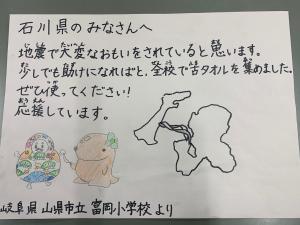 石川県のみなさんへ
地震で大変なおもいをされていると思います。
少しでも助けになればと、全校で古タオルを集めました。
ぜひ使ってください！
応援しています。
岐阜県 山県市立 富岡小学校 より